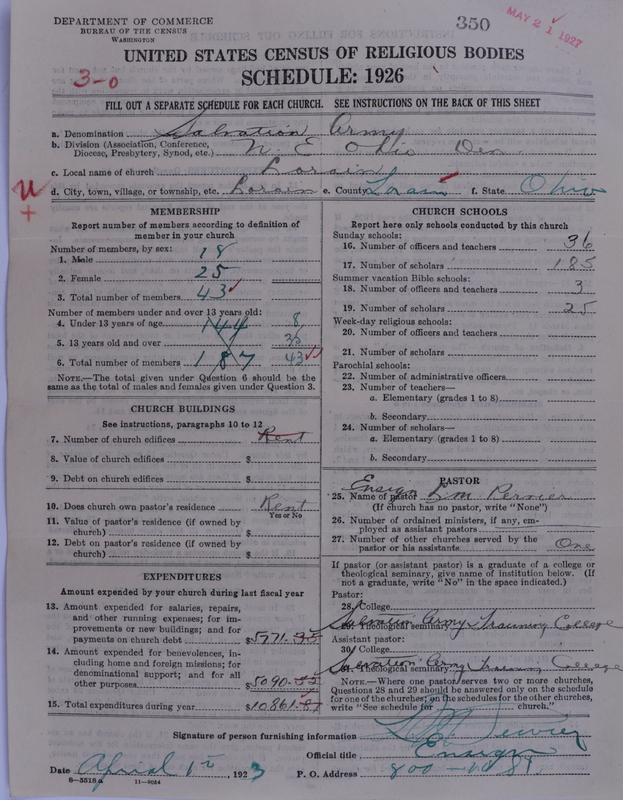 DEPARTMENT OF COMMERCE
BUREAU OF THE CENSUS
WASHINGTON
350
MAY 21 1927
UNITED STATES CENSUS OF RELIGIOUS BODIES
3-0
SCHEDULE: 1926
FILL OUT A SEPARATE SCHEDULE FOR EACH CHURCH. SEE INSTRUCTIONS ON THE BACK OF THIS SHEET
a. Denomination Salvation Army
b. Division (Association, Conference, Diocese, Presbytery, Synod, etc.) N. E. Ohio Div
c. Local name of church Lorain
d. City, town, village, or township, etc. Lorain e. County Lorain f. State Ohio
MEMBERSHIP
Report number of members according to definition of
member in your church
Number of members, by sex:
1. Male 18
2. Female 25
3. Total number of members 43
Number of members under and over 13 years old:
4. Under 13 years of age 144 8
5. 13 years old and over 35
6. Total number of members 187 43
NOTE.—The total given under Question 6 should be
same as the total of males and females given under Question 3.
CHURCH BUILDINGS
See instructions, paragraphs 10 to 12
7. Number of church edifices Rent
8. Value of church edifices $
9. Debt on church edifices $
10. Does church own pastor's residence Rent
Yes or No
11. Value of pastor's residence (if owned by
church) $
12. Debt on pastor's residence (if owned by
church) $
EXPENDITURES
Amount expended by your church during last fiscal year
13. Amount expended for salaries, repairs,
and other running expenses; for im-
provements or new buildings; and for
payments on church debt $5771.
14. Amount expended for benevolences, in-
cluding home and foreign missions; for
denominational support; and for all
other purposes $5090.
15. Total expenditures during year $10861.
CHURCH SCHOOLS
Report here only schools conducted by this church
Sunday schools:
16. Number of officers and teachers 36
17. Number of scholars 185
Summer vacation Bible schools:
18. Number of officers and teachers 3
19. Number of scholars 25
Week-day religious schools:
20. Number of officers and teachers
21. Number of scholars
Parochial schools:
22. Number of administrative officers
23. Number of teachers—
a. Elementary (grades 1 to 8)
b. Secondary
24. Number of scholars—
a. Elementary (grades 1 to 8)
b. Secondary
PASTOR
Ensign
25. Name of pastor
(If church has no pastor, write "None")
26. Number of ordained ministers, if any, em-
ployed as assistant pastors
27. Number of other churches served by the
pastor or his assistants One
If pastor (or assistant pastor) is a graduate of a college or
theological seminary, give name of institution below. (If
not a graduate, write "No" in the space indicated.)
Pastor:
28. College
29. Theological seminary Salvation Army Training College
Assistant pastor:
30. College
31. Theological seminary Salvation Army Training College
NOTE.—Where one pastor serves two or more churches,
Questions 28 and 29 should be answered only on the schedule
for one of the churches; on the schedules for the other churches,
write "See schedule for church."
Signature of person furnishing information
Official title Ensign
Date April 1st, 1923 P. O. Address 800 - 10 St
8-5518a 11-9024